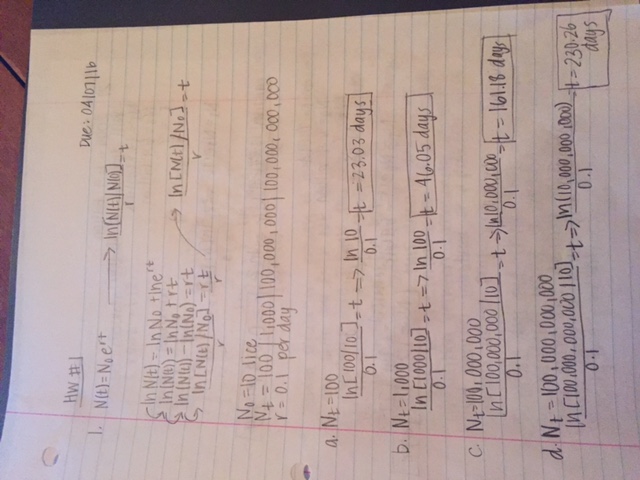 HW #1
Due: 04/07/16
1. N(t)=N₀e^rt → ln[N(t)/N(0)]/r = t
lnN(t) = lnN₀ + lne^rt
ln(N(t)) = lnN₀ + rt
ln(N(t)) - ln(N₀) = rt
ln[N(t)/N₀]/r = rt/r → ln[N(t)/N₀]/r = t
N₀ = 10 lice
Nt = 100 | 1,000 | 100,000,000 | 100,000,000,000
r = 0.1 per day
a. Nt = 100
ln[100/10]/0.1 = t => ln 10/0.1 = t = 23.03 days
b. Nt = 1,000
ln[1000/10]/0.1 = t => ln 100/0.1 = t = 46.05 days
c. Nt = 100,000,000
ln[100,000,000/10]/0.1 = t => ln10,000,000/0.1 = t = 161.18 days
d. Nt = 100,000,000,000
ln[100,000,000,000/10]/0.1 = t => ln(10,000,000,000)/0.1 = t = 230.26
days